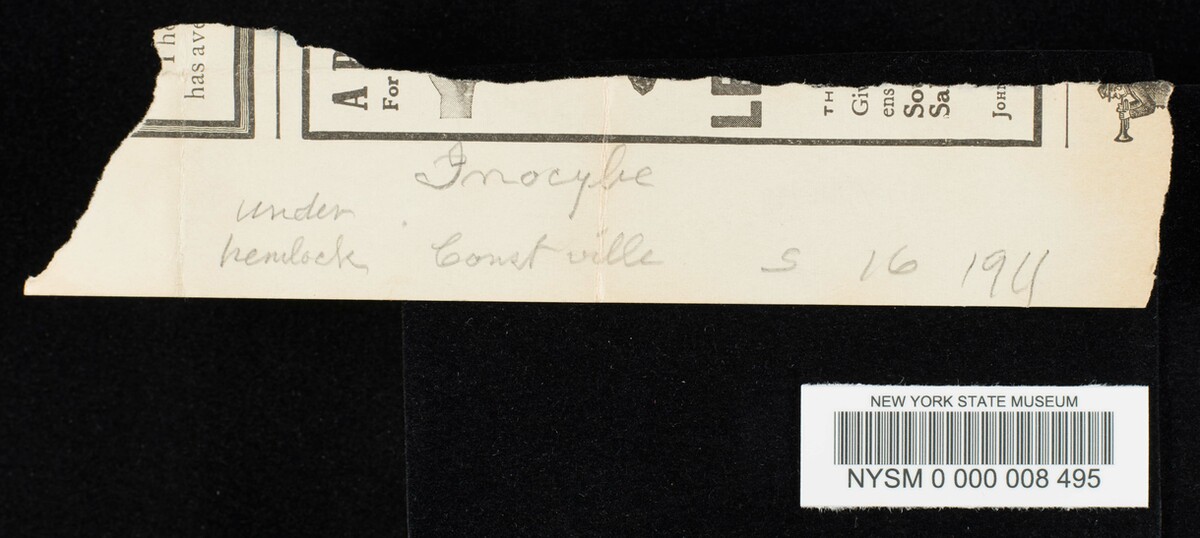 has ave
For
THE
Giv
ens
So
Sa
JOHN
Inocybe
under
hemlock Const ville S 16 1911
NEW YORK STATE MUSEUM
NYSM 0 000 008 495